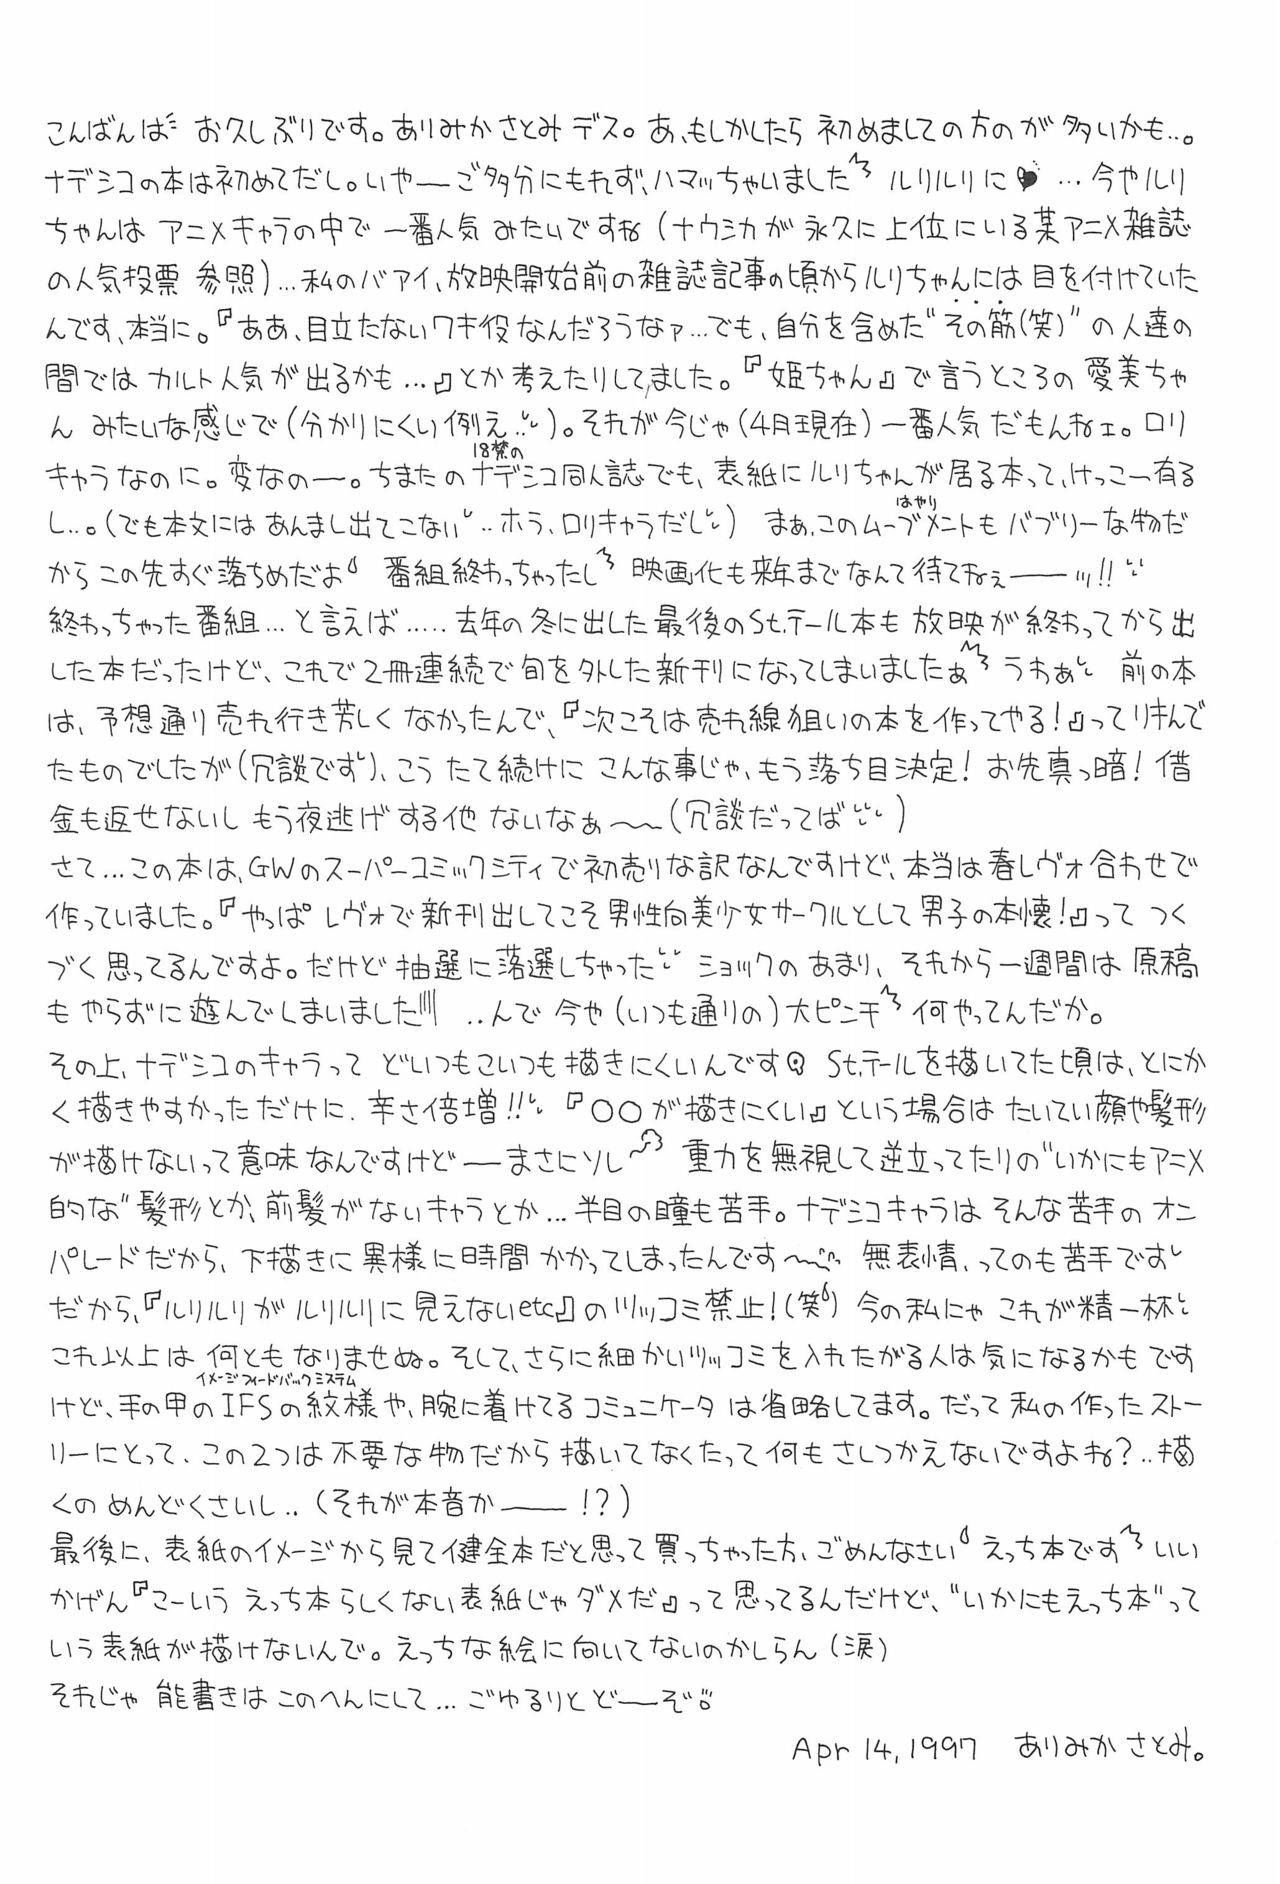 こんばんは お久しぶりです。ありみかさとみデス。あ、もしかしたら 初めましての方のが多いかも…。
ナデシコの本は初めてだし。いやーご多分にもれず、ハマッちゃいました ルリルリに …今やルリ
ちゃんは アニメキャラの中で 一番人気 みたいですね(ナウシカが 永久に上位にいる某アニメ雑誌
の人気投票 参照)…私のバアイ、放映開始前の雑誌記事の頃からルリちゃんには 目を付けていた
んです、本当に。『ああ、目立たないワキ役なんだろうなァ…でも、自分を含めた"その筋(笑)"の人達の
間では カルト人気が出るかも…』とか考えたりしてました。『姫ちゃん』で言うところの 愛美ちゃ
ん みたいな感じで(分かりにくい例え!!)。それが今じゃ(4月現在)一番人気だもんねェ。ロリ
18禁の
キャラなのに。変なのー。ちまたのナデシコ同人誌でも、表紙にルリちゃんが居る本って、けっこー有る
はやり
し…。(でも本文には あんまし出てこない…ホラ、ロリキャラだし) まぁ、このムーブメントも バブリーな物だ
から この先すぐ落ちめだよ 番組終わっちゃったし 映画化も来年までなんて待てねぇーーッ!!
終わっちゃった番組…と言えば……去年の冬に出した最後のSt.テール本も 放映が終わってから出
した本だったけど、これで2冊連続で旬を外した新刊になってしまいましたぁ うわぁ 前の本
は、予想通り売れ行き芳しく なかったんで、『次こそは売れ線狙いの本を作ってやる!』ってリキんで
たものでしたが(冗談です)、こう たて続けに こんな事じゃ、もう落ち目決定! お先真っ暗! 借
金も返せないし もう夜逃げする他 ないなぁ〜(冗談だってば)
さて…この本は、GWのスーパーコミックシティで初売りな訳なんですけど、本当は春レヴォ合わせで
作っていました。『やっぱ レヴォで新刊出してこそ男性向美少女サークルとして男子の本懐!』って つく
づく思ってるんですよ。だけど 抽選に落選しちゃった ショックの あまり、それから一週間は 原稿
も やらずに遊んでしまいました ..んで 今や(いつも通りの)大ピンチ 何やってんだか。
その上、ナデシコのキャラって どいつもこいつも描きにくいんです St.テールを描いてた頃は、とにか
く描きやすかっただけに、辛さ倍増!! 『○○が描きにくい』という場合は たいてい顔や髪形
が描けないって意味なんですけどーまさにソレ 重力を無視して逆立ってたりの"いかにもアニメ
的な"髪形とか、前髪がないキャラとか…半目の瞳も苦手。ナデシコキャラは そんな苦手の オン
パレードだから、下描きに異様に時間 かかってしまったんです〜 無表情、ってのも苦手です
だから、『ルリルリが ルリルリに 見えないetc』のツッコミ禁止!(笑) 今の私にゃ これが精一杯
これ以上は 何とも なりませぬ。そして、さらに細かいツッコミを入れたがる人は気になるかもです
イメージフィードバックシステム
けど、手の甲のIFSの紋様や、腕に着けてるコミュニケータは省略してます。だって 私の作ったストー
リーにとって、この2つは不要な物だから描いてなくたって何もさしつかえないですよね?..描
くの めんどくさいし..(それが本音かーー!?)
最後に、表紙のイメージから見て健全本だと思って買っちゃった方、ごめんなさい えっち本です いい
かげん『こーいう えっち本らしくない表紙じゃダメだ』って思ってるんだけど、"いかにもえっち本"って
いう表紙が描けないんで。えっちな絵に向いてないのかしらん(涙)
それじゃ 能書きはこのへんにして…ごゆるりとどーぞ
Apr 14,1997 ありみかさとみ。